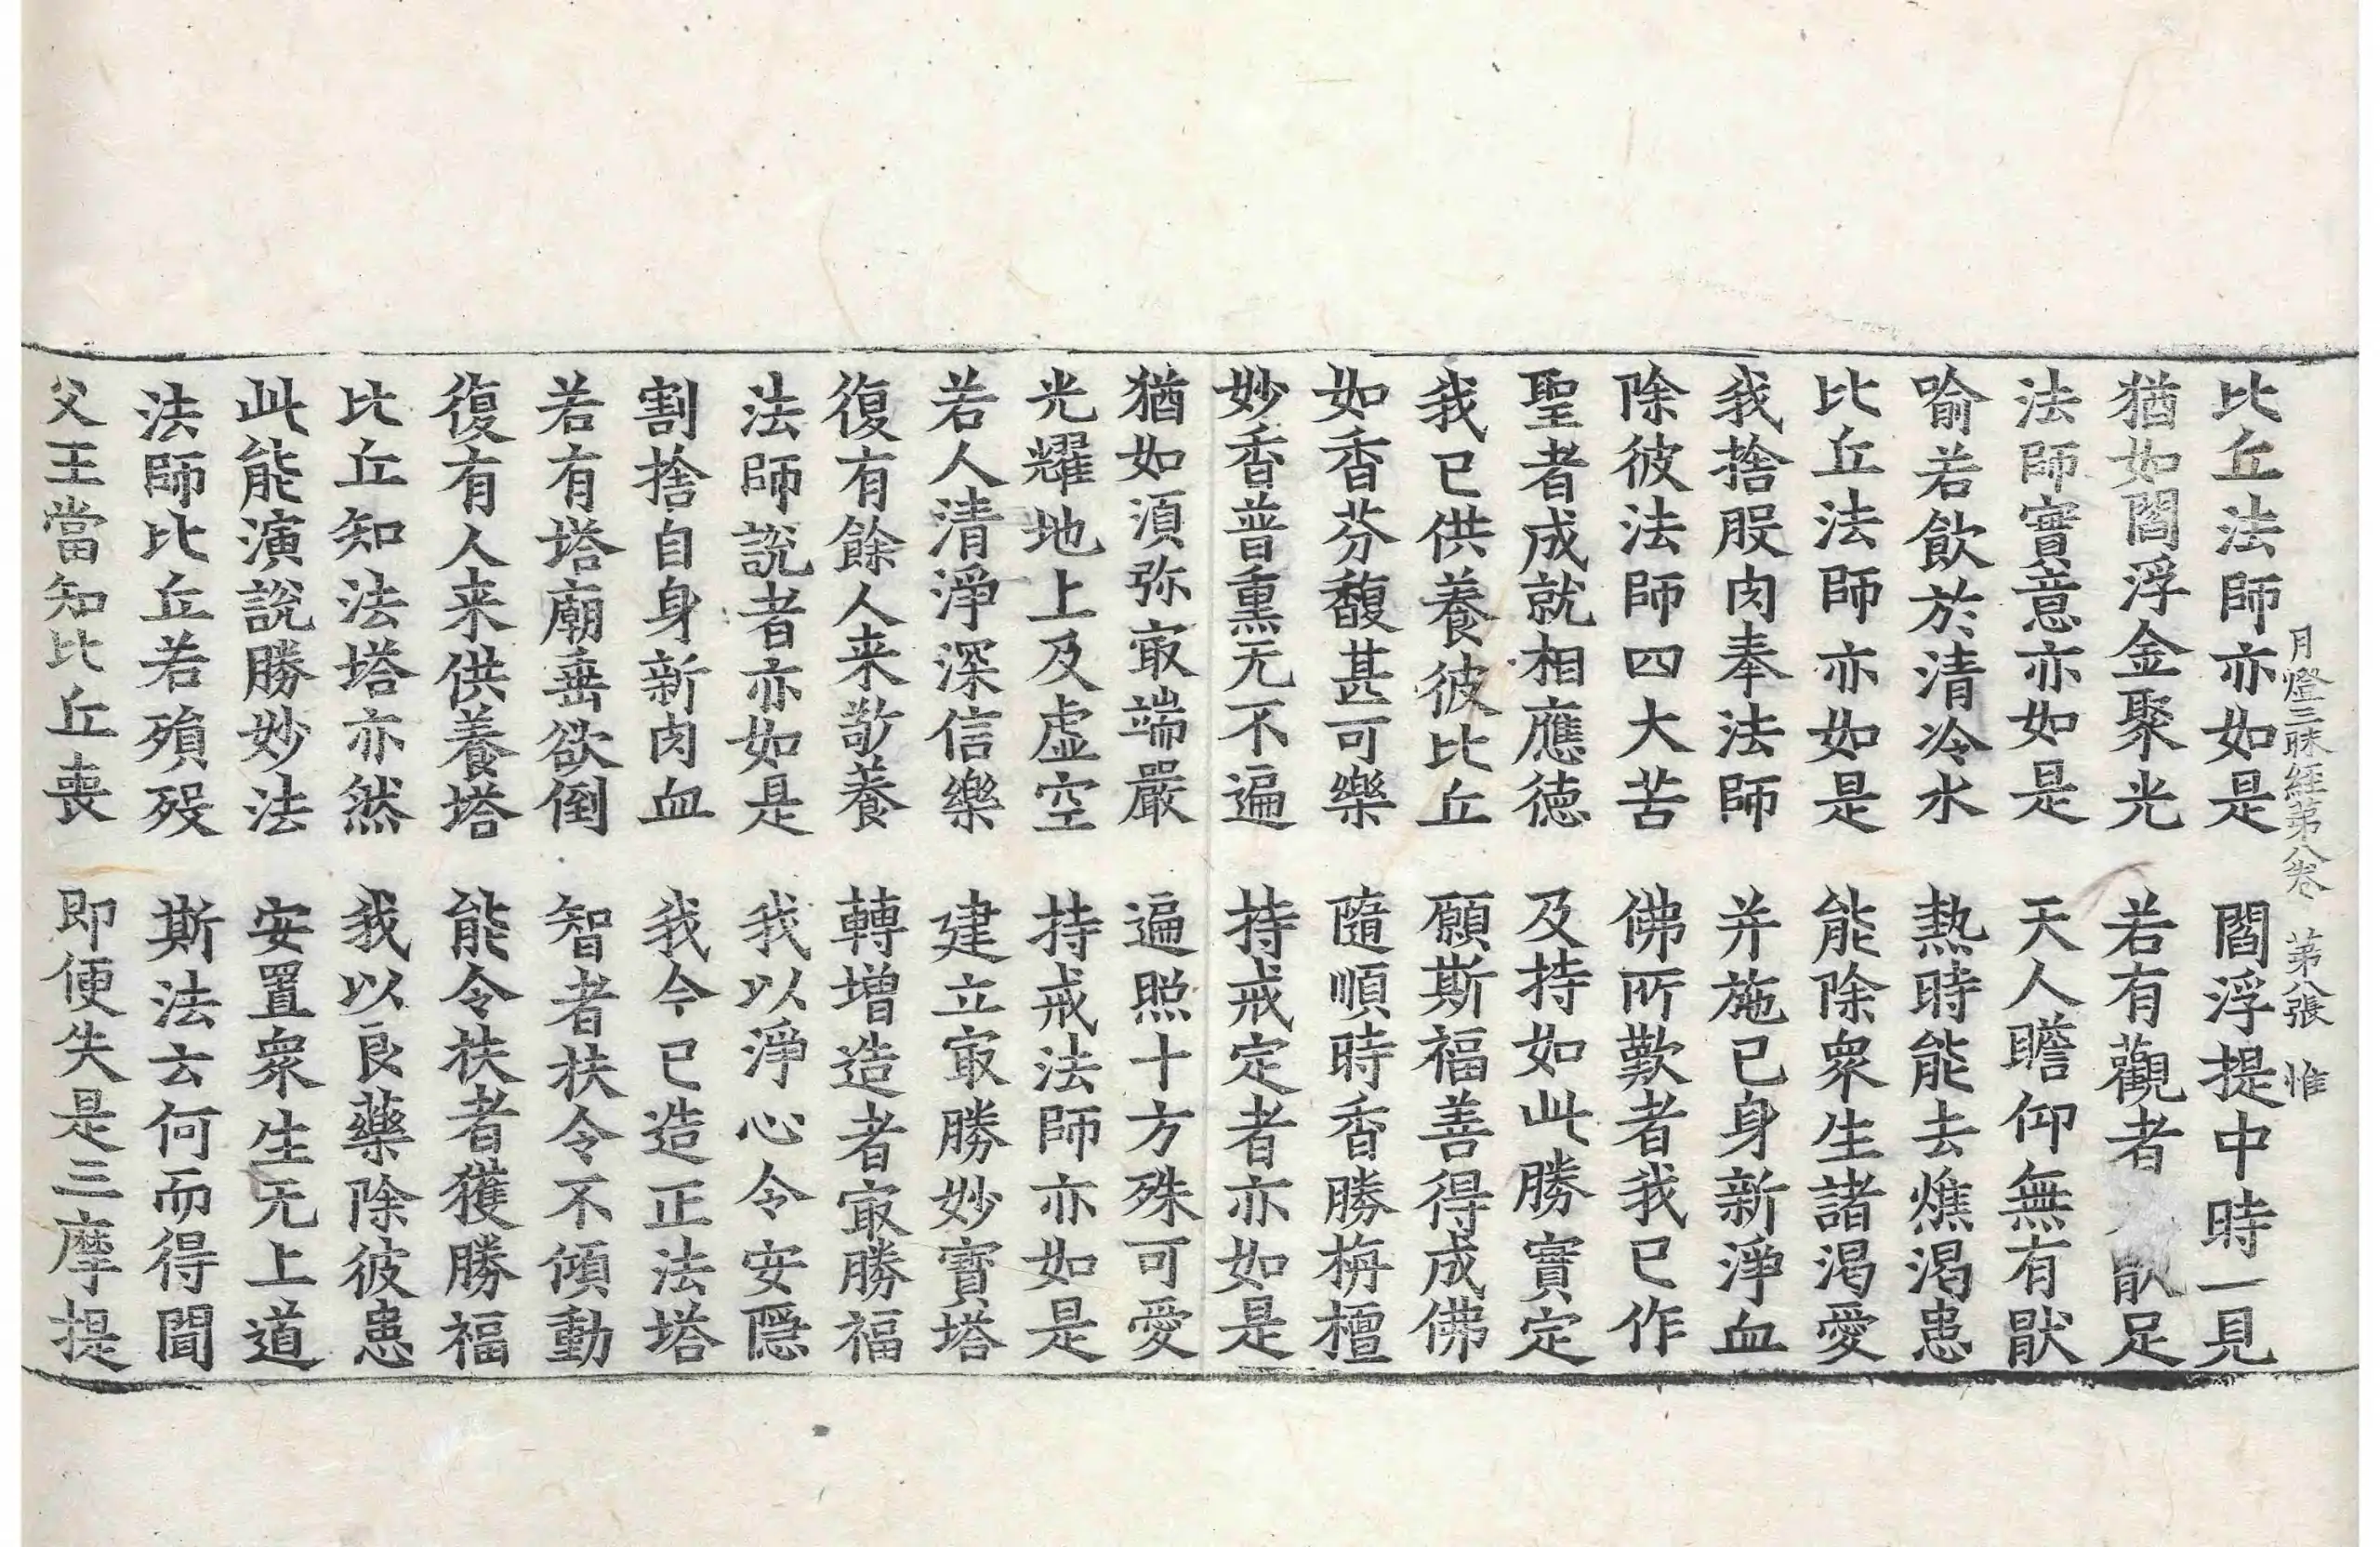 月燈三昧經第八卷 第八張 惟
比丘法師亦如是 閻浮提中時一見
猶如閻浮金聚光 若有觀者 猒足
法師寶意亦如是 天人瞻仰無有猒
喻若飲於清冷水 熱時能去燋渴患
比丘法師亦如是 能除衆生諸渴愛
我捨股肉奉法師 并施已身新淨血
除彼法師四大苦 佛所歎者我已作
聖者成就相應德 及持如此勝實定
我已供養彼比丘 願斯福善得成佛
如香芬馥甚可樂 隨順時香勝栴檀
妙香普熏无不遍 持戒定者亦如是
猶如須弥㝡端嚴 遍照十方殊可愛
光耀地上及虛空 持戒法師亦如是
若人清淨深信樂 建立㝡勝妙寶塔
復有餘人来敬養 轉增造者㝡勝福
法師說者亦如是 我以淨心令安隱
割捨自身新肉血 我今已造正法塔
若有塔廟垂欲倒 智者扶令不傾動
復有人来供養塔 能令扶者獲勝福
比丘知法塔亦然 我以良藥除彼患
此能演說勝妙法 安置衆生无上道
法師比丘若殞歿 斯法云何而得聞
父王當知比丘喪 即便失是三摩提